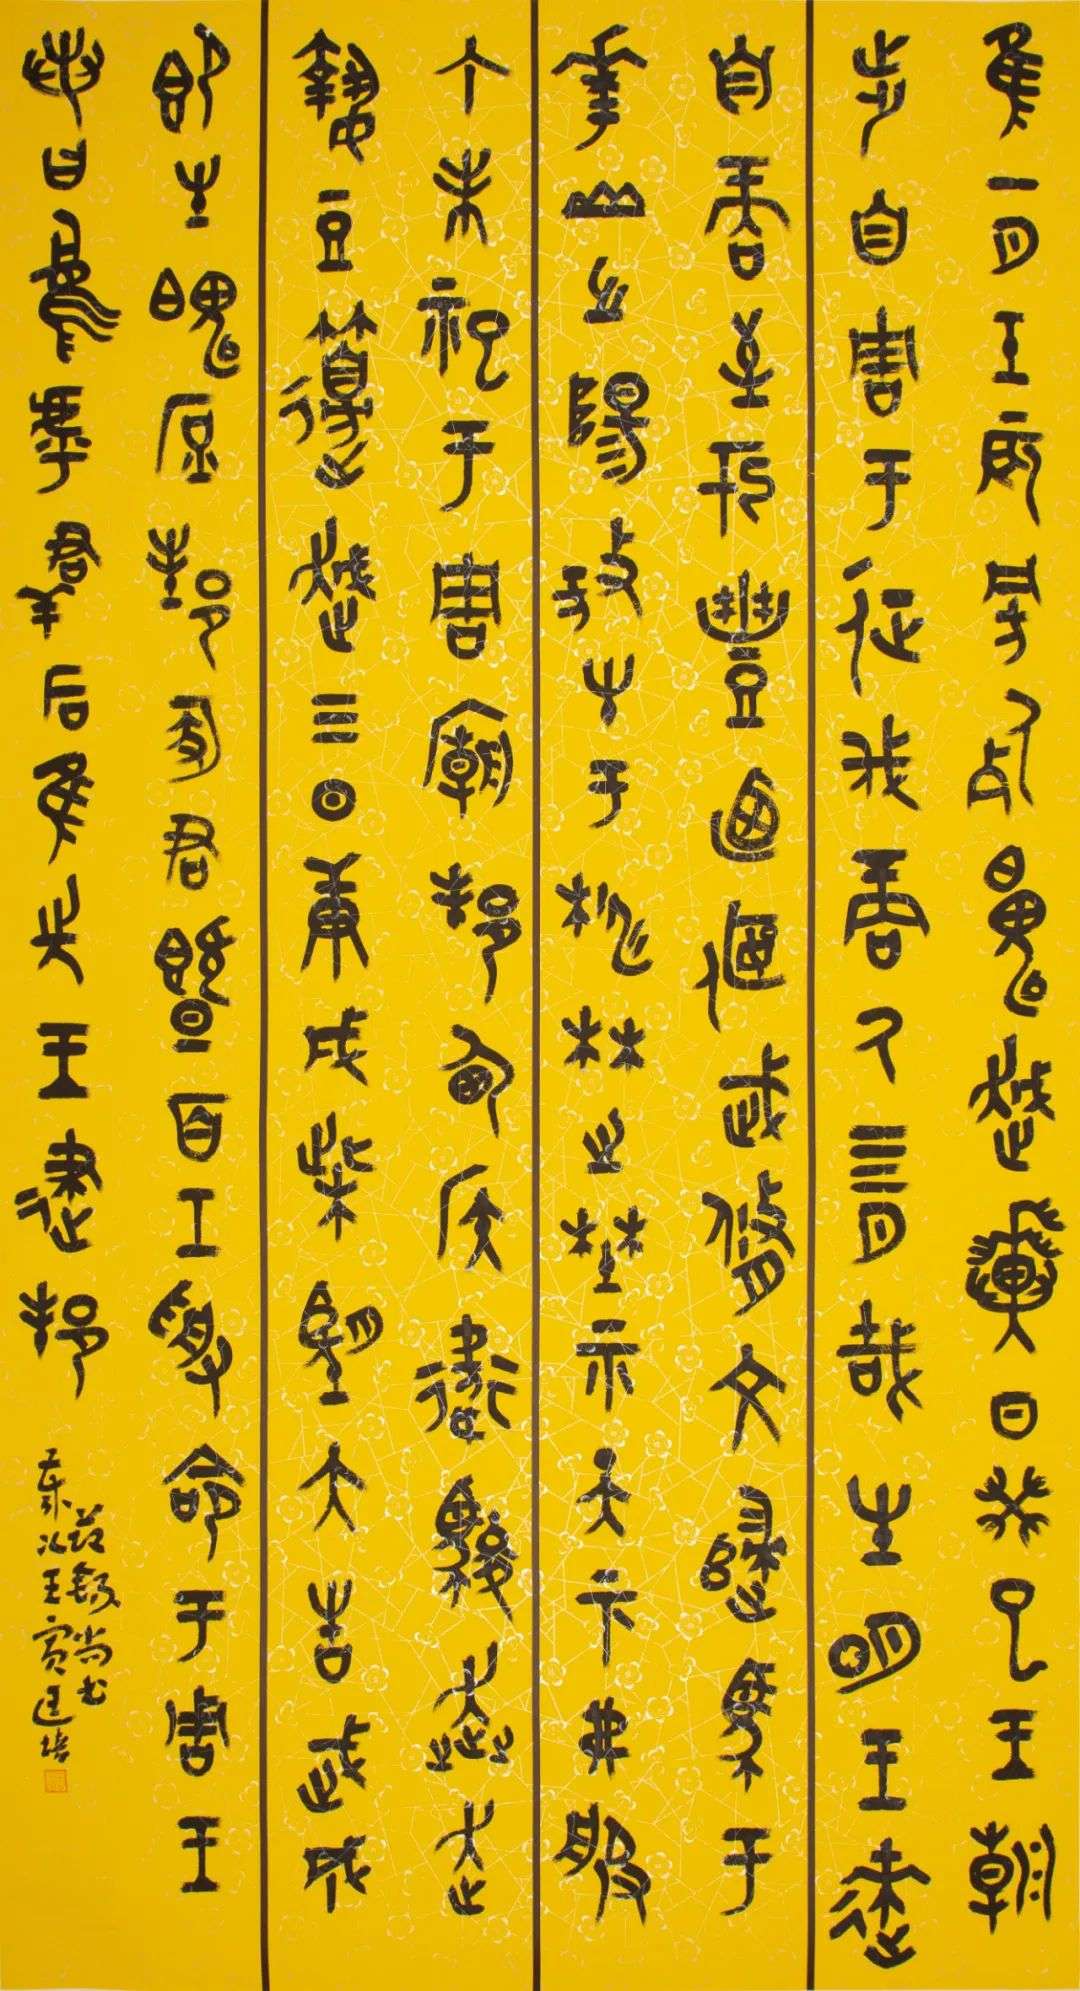 隹一月壬辰旁死魄越翼日癸巳王朝
步自周于征伐商氒四月哉生明王來
自商至于豐迺偃武修文歸馬于
華山之陽放牛于桃林之野示天下弗服
丁未祀于周廟邦甸侯衛駿奔走
執豆籩越三日庚戌柴望大告武成
既生魄庶邦冢君暨百工受命于周王
若曰烏虖群后隹先王建邦
節錄尚書